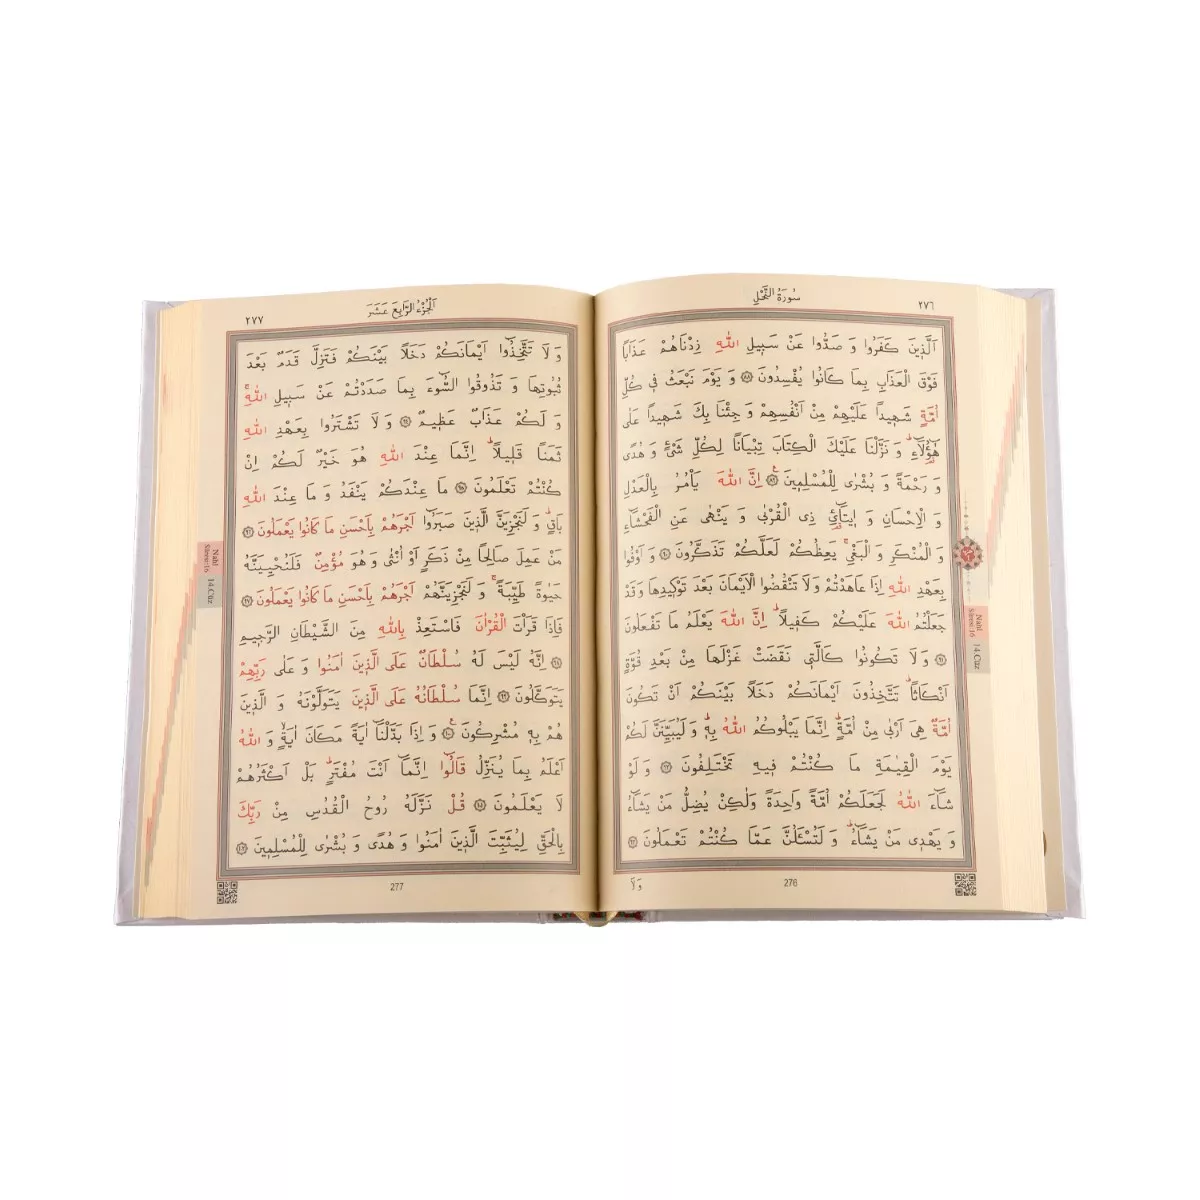 ٢٧٦
سُورَةُ النَّحْلِ
اَلَّذ۪ينَ كَفَرُوا وَ صَدُّوا عَنْ سَب۪يلِ اللّٰهِ زِدْنَاهُمْ عَذَابًا
فَوْقَ الْعَذَابِ بِمَا كَانُوا يُفْسِدُونَ ﴿٨٨﴾ وَ يَوْمَ نَبْعَثُ ف۪ي كُلِّ
اُمَّةٍ شَه۪يدًا عَلَيْهِمْ مِنْ اَنْفُسِهِمْ وَ جِئْنَا بِكَ شَه۪يدًا عَلٰى
هٰٓؤُ۬لَٓاءِۜ وَ نَزَّلْنَا عَلَيْكَ الْكِتَابَ تِبْيَانًا لِكُلِّ شَيْءٍ وَ هُدًى
وَ رَحْمَةً وَ بُشْرٰى لِلْمُسْلِم۪ينَ ﴿٨٩﴾ اِنَّ اللّٰهَ يَأْمُرُ بِالْعَدْلِ
وَ الْاِحْسَانِ وَ ا۪يتَٓائِ ذِي الْقُرْبٰى وَ يَنْهٰى عَنِ الْفَحْشَٓاءِ
وَ الْمُنْكَرِ وَ الْبَغْيِۚ يَعِظُكُمْ لَعَلَّكُمْ تَذَكَّرُونَ ﴿٩٠﴾ وَ اَوْفُوا
بِعَهْدِ اللّٰهِ اِذَا عَاهَدْتُمْ وَ لَا تَنْقُضُوا الْاَيْمَانَ بَعْدَ تَوْك۪يدِهَا وَ قَدْ
جَعَلْتُمُ اللّٰهَ عَلَيْكُمْ كَف۪يلًاۜ اِنَّ اللّٰهَ يَعْلَمُ مَا تَفْعَلُونَ
﴿٩١﴾ وَ لَا تَكُونُوا كَالَّت۪ي نَقَضَتْ غَزْلَهَا مِنْ بَعْدِ قُوَّةٍ
اَنْكَاثًاۜ تَتَّخِذُونَ اَيْمَانَكُمْ دَخَلًا بَيْنَكُمْ اَنْ تَكُونَ
اُمَّةٌ هِيَ اَرْبٰى مِنْ اُمَّةٍۜ اِنَّمَا يَبْلُوكُمُ اللّٰهُ بِه۪ۜ وَ لَيُبَيِّنَنَّ لَكُمْ
يَوْمَ الْقِيٰمَةِ مَا كُنْتُمْ ف۪يهِ تَخْتَلِفُونَ ﴿٩٢﴾ وَ لَوْ
شَٓاءَ اللّٰهُ لَجَعَلَكُمْ اُمَّةً وَاحِدَةً وَلٰكِنْ يُضِلُّ مَنْ يَشَٓاءُ
وَ يَهْد۪ي مَنْ يَشَٓاءُۜ وَ لَتُسْـَٔلُنَّ عَمَّا كُنْتُمْ تَعْمَلُونَ ﴿٩٣﴾
Nahl
Sûresi:16
14.Cüz
276
وَلَا
اَلْجُزْءُ الرَّابِعَ عَشَرَ
٢٧٧
وَ لَا تَتَّخِذُٓوا اَيْمَانَكُمْ دَخَلًا بَيْنَكُمْ فَتَزِلَّ قَدَمٌ بَعْدَ
ثُبُوتِهَا وَ تَذُوقُوا السُّٓوءَ بِمَا صَدَدْتُمْ عَنْ سَب۪يلِ اللّٰهِۚ
وَ لَكُمْ عَذَابٌ عَظ۪يمٌ ﴿٩٤﴾ وَ لَا تَشْتَرُوا بِعَهْدِ اللّٰهِ
ثَمَنًا قَل۪يلًاۜ اِنَّمَا عِنْدَ اللّٰهِ هُوَ خَيْرٌ لَكُمْ اِنْ
كُنْتُمْ تَعْلَمُونَ ﴿٩٥﴾ مَا عِنْدَكُمْ يَنْفَدُ وَ مَا عِنْدَ اللّٰهِ
بَاقٍۜ وَ لَنَجْزِيَنَّ الَّذ۪ينَ صَبَرُٓوا اَجْرَهُمْ بِاَحْسَنِ مَا كَانُوا يَعْمَلُونَ ﴿٩٦﴾
مَنْ عَمِلَ صَالِحًا مِنْ ذَكَرٍ اَوْ اُنْثٰى وَ هُوَ مُؤْمِنٌ فَلَنُحْيِيَنَّهُ
حَيٰوةً طَيِّبَةًۚ وَ لَنَجْزِيَنَّهُمْ اَجْرَهُمْ بِاَحْسَنِ مَا كَانُوا يَعْمَلُونَ ﴿٩٧﴾
فَاِذَا قَرَأْتَ الْقُرْاٰنَ فَاسْتَعِذْ بِاللّٰهِ مِنَ الشَّيْطَانِ الرَّج۪يمِ
﴿٩٨﴾ اِنَّهُ لَيْسَ لَهُ سُلْطَانٌ عَلَى الَّذ۪ينَ اٰمَنُوا وَ عَلٰى رَبِّهِمْ
يَتَوَكَّلُونَ ﴿٩٩﴾ اِنَّمَا سُلْطَانُهُ عَلَى الَّذ۪ينَ يَتَوَلَّوْنَهُ وَ الَّذ۪ينَ
هُمْ بِه۪ مُشْرِكُونَ ﴿١٠٠﴾ وَ اِذَا بَدَّلْنَٓا اٰيَةً مَكَانَ اٰيَةٍۙ وَ اللّٰهُ
اَعْلَمُ بِمَا يُنَزِّلُ قَالُٓوا اِنَّمَٓا اَنْتَ مُفْتَرٍۜ بَلْ اَكْثَرُهُمْ
لَا يَعْلَمُونَ ﴿١٠١﴾ قُلْ نَزَّلَهُ رُوحُ الْقُدُسِ مِنْ رَبِّكَ
بِالْحَقِّ لِيُثَبِّتَ الَّذ۪ينَ اٰمَنُوا وَ هُدًى وَ بُشْرٰى لِلْمُسْلِم۪ينَ ﴿١٠٢﴾
Nahl
Sûresi:16
14.Cüz
277